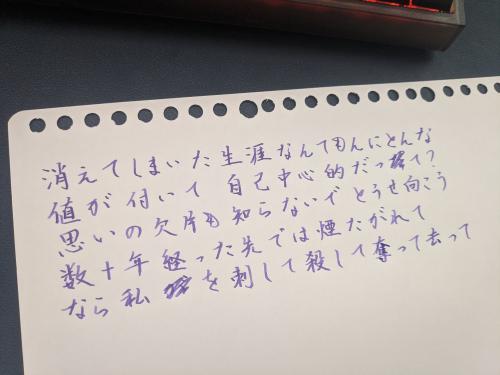 消えてしまいた生涯なんてもんにどんな
値が付いて 自己中心的だって?
思いの欠片も知らないで どうせ向こう
数十年経った先では煙たがれて
なら私を刺して殺して奪って去って